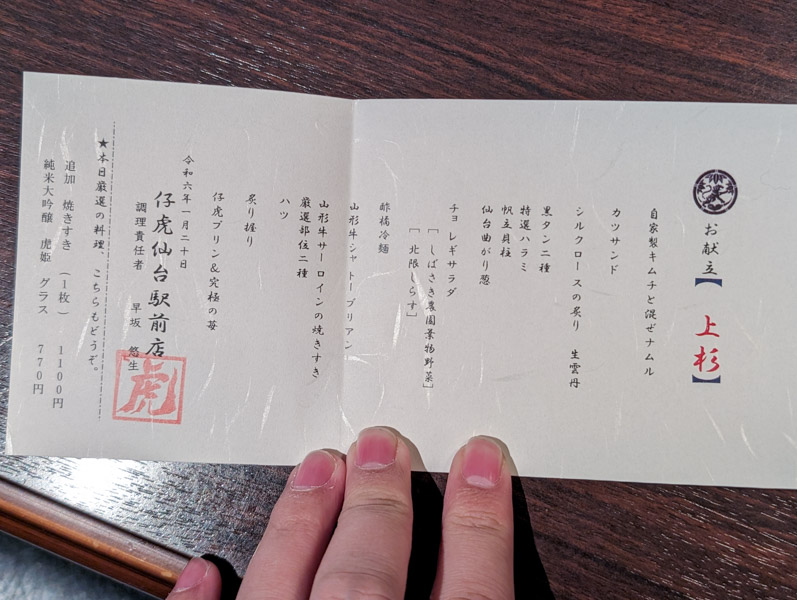 お献立【上杉】
自家製キムチと混ぜナムル
カツサンド
シルクロースの炙り 生雲丹
黒タン二種
特選ハラミ
帆立貝柱
仙台曲がり葱
チョレギサラダ
[しばさき農園葉物野菜]
[北限しらす]
酢橘冷麺
山形牛シャトーブリアン
山形牛サーロインの焼きすき
厳選部位二種
ハツ
炙り握り
仔虎プリン&究極の苺
令和六年一月二十日
仔虎仙台駅前店
調理責任者 早坂 悠生
虎
★本日厳選の料理、こちらもどうぞ。
追加 焼きすき (1枚) 1100円
純米大吟醸 虎姫 グラス 770円